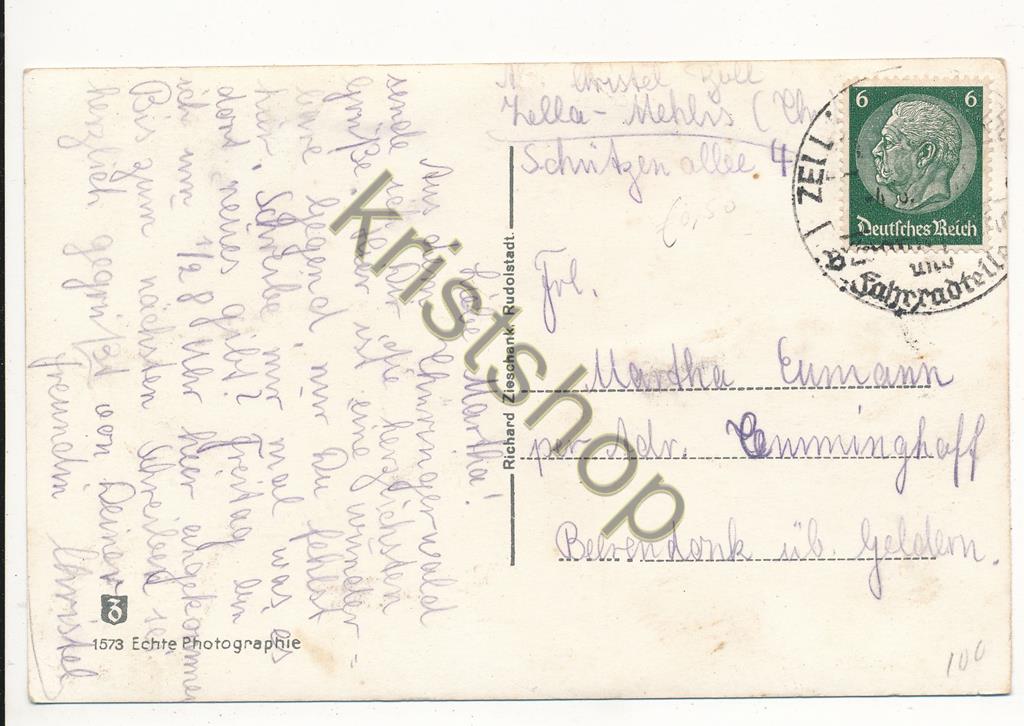 Christel
Zella-Mehlis (Th
Schützenallee 4
6 6
Deutsches Reich
ZELL
und
Fahrradteile
€0,50
Frl.
Martha Eumann
per Adr. Lemminghoff
Beerendonk üb. Geldern.
Richard Zieschank, Rudolstadt.
Liebe Martha!
Aus dem Thüringerwald
sende ich Dir die herzlichsten
Grüße. Hier ist eine wunder-
bare Gegend, nur Du fehlst
hier. Schreibe mir mal was es
dort neues gibt? Freitag bin
ich um 1/2 8 Uhr hier angekommen
Bis zum nächsten Schreiben sei
herzlich gegrüßt von Deiner
Freundin Christel
1573 Echte Photographie
100
Kristshop